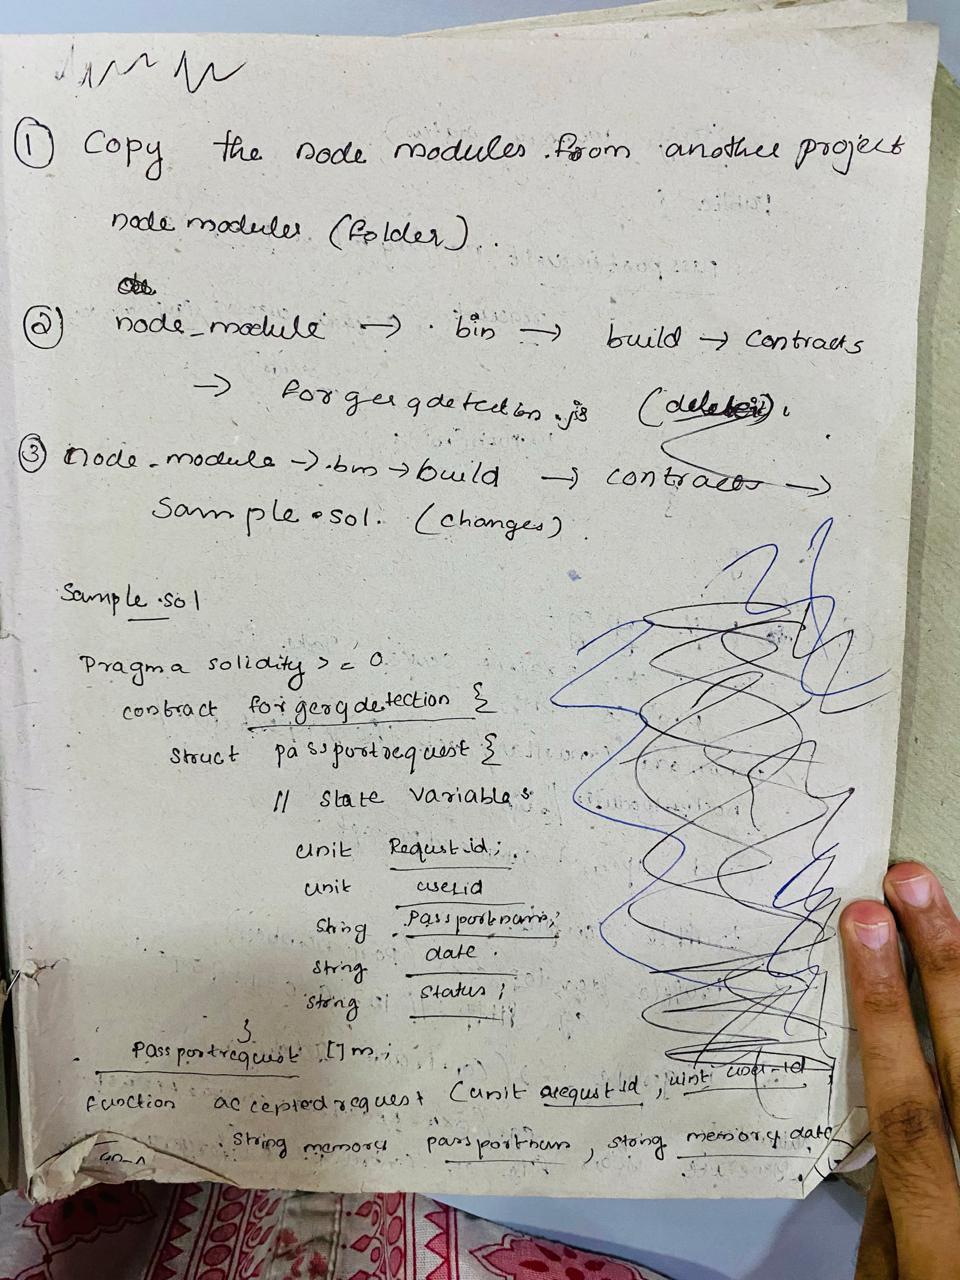 ① Copy the node modules from another project
node modules (folder).
② node_module → .bin → build → contracts
→ forgerydetection.js (delete).
③ node_module → .bin → build → contracts →
Sample.sol. (changes)
Sample.sol
Pragma solidity >= 0
contract forgerydetection {
struct passportrequest {
// State Variables
unit Requstid;
unit userid
string Passportnum;
string date.
string Status;
}
Passportrequest []m;
function acceptedrequest (unit arequstid, uint user-id
string memory passportnum, string memory date